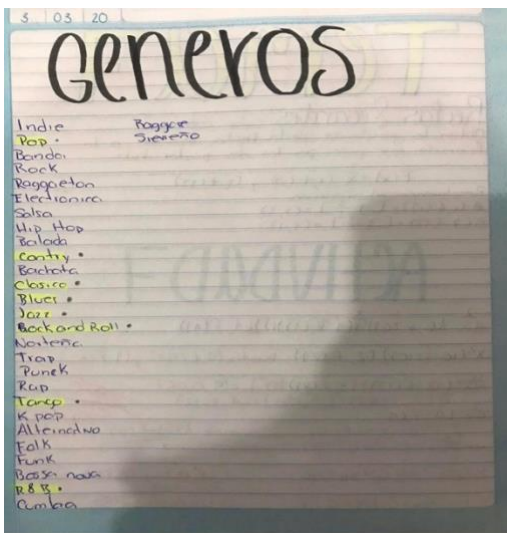 5 03 20
Generos
Indie
Pop •
Banda
Rock
Raggaeton
Electronica
Salsa
Hip Hop
Balada
Contry •
Bachata
Clasico •
Blues •
Jazz •
Rock and Roll •
Norteña
Trap
Punck
Rap
Tango •
K pop
Alternativo
Folk
Funk
Bossa nova
R&B •
Cumbia
Raggae